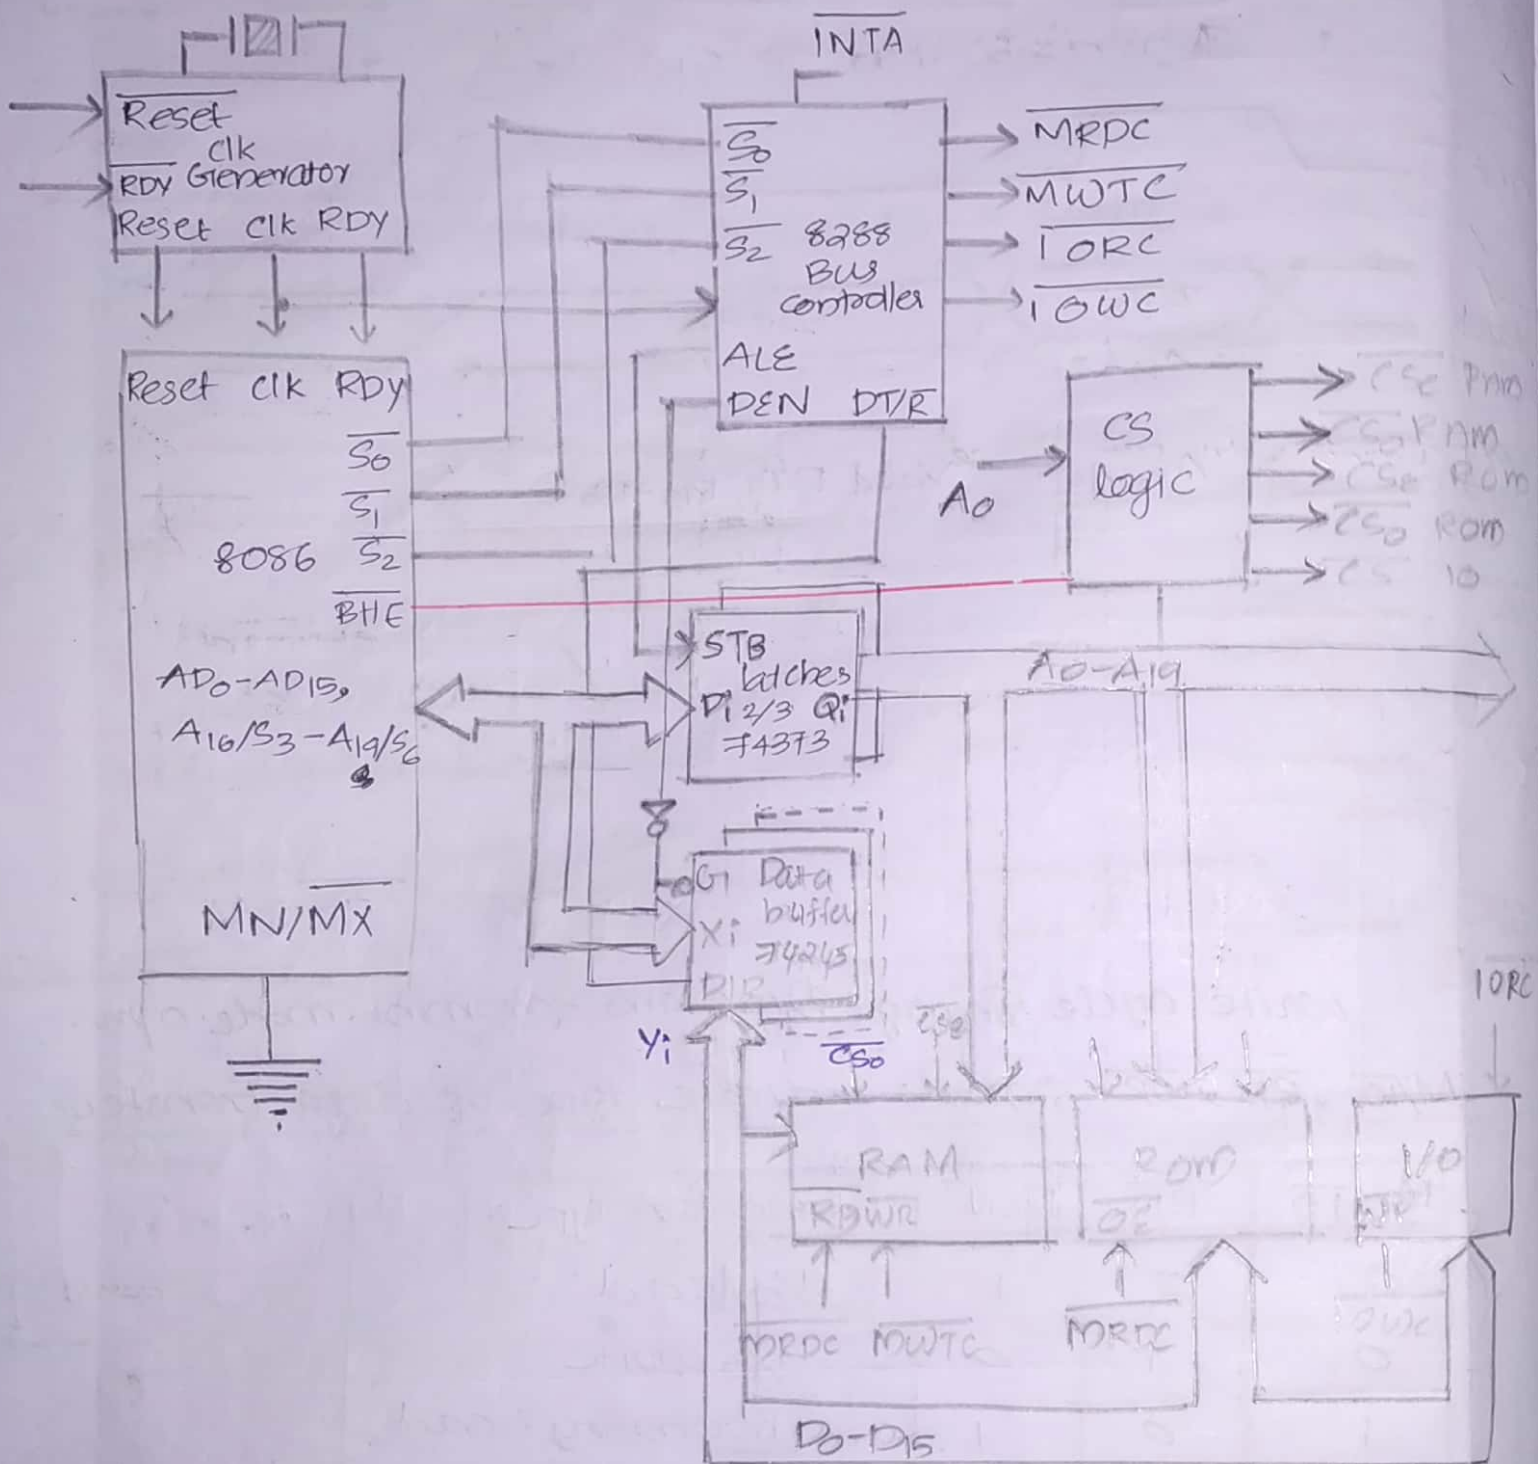 I̅N̅T̅A̅
R̅e̅s̅e̅t̅
Clk
R̅D̅Y̅ Generator
Reset Clk RDY
S̅₀̅
S̅₁̅
S̅₂̅ 8288
Bus
controller
ALE
DEN DT/R̅
M̅R̅D̅C̅
M̅W̅T̅C̅
I̅O̅R̅C̅
I̅O̅W̅C̅
Reset Clk RDY
S̅₀̅
S̅₁̅
8086 S̅₂̅
B̅H̅E̅
AD₀-AD₁₅,
A₁₆/S₃-A₁₉/S₆
MN/M̅X̅
A₀
CS
logic
C̅S̅₀̅ RAM
C̅S̅e̅ Rom
C̅S̅₀̅ Rom
C̅S̅ IO
STB
latches
Di 2/3 Qi
74373
A₀-A₁₉
G Data
buffer
Xi 74245
DIR
Yi
C̅S̅₀̅
C̅S̅e̅
IORC
RAM
R̅D̅ W̅R̅
ROM
O̅E̅
I/O
M̅R̅D̅C̅ M̅W̅T̅C̅
M̅R̅D̅C̅
I̅O̅W̅C̅
D₀-D₁₅